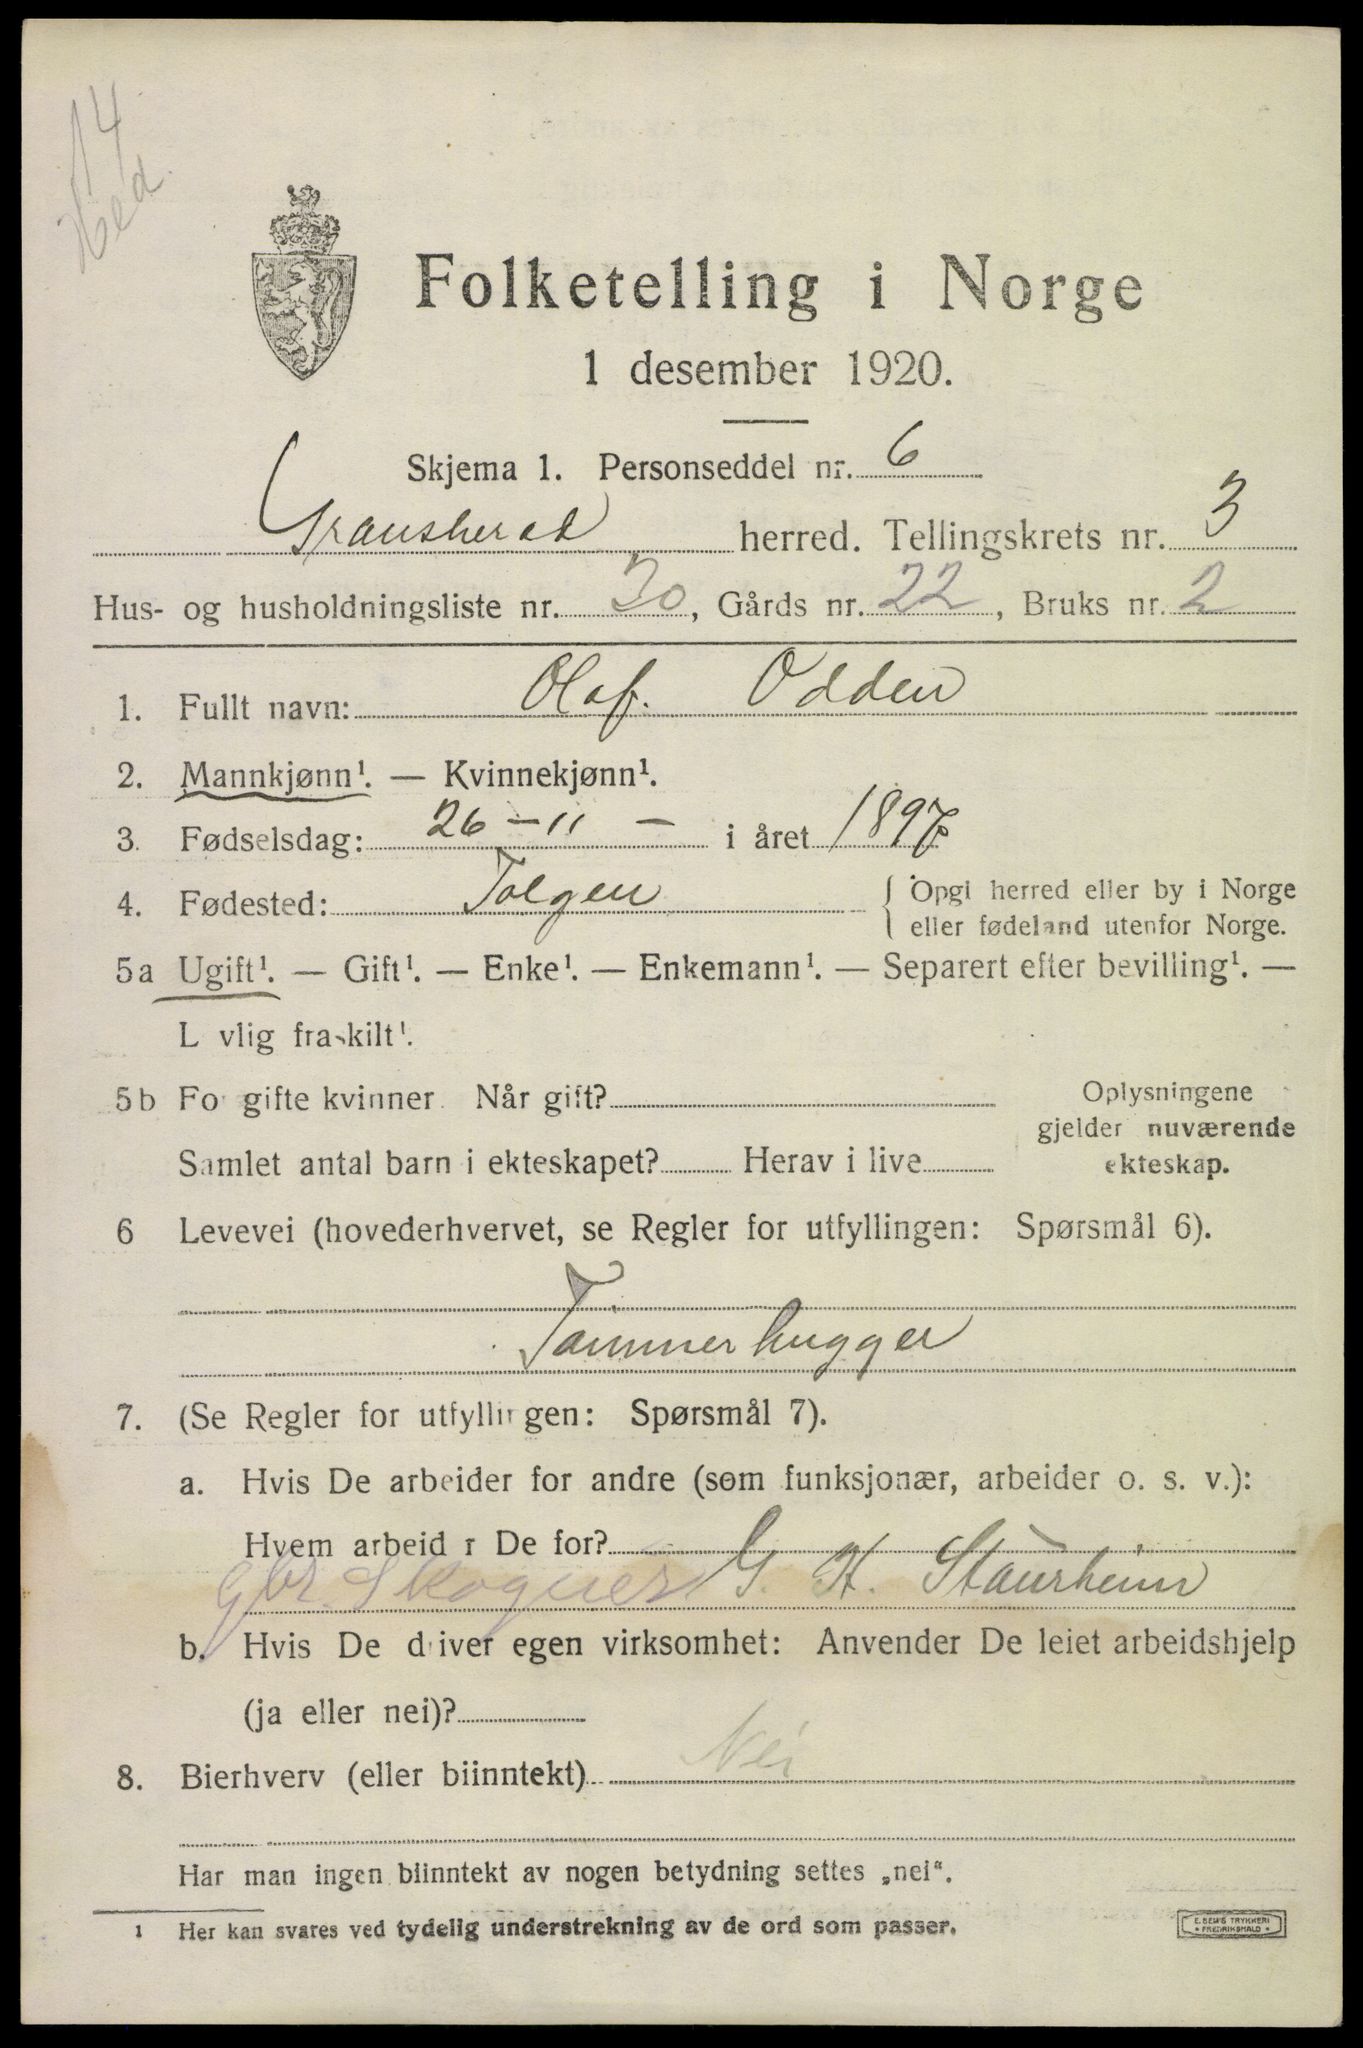 14
Hed.
Folketelling i Norge
1 desember 1920.
Skjema 1. Personseddel nr. 6
Gransherad herred. Tellingskrets nr. 3
Hus- og husholdningsliste nr. 30, Gårds nr. 22, Bruks nr. 2
1. Fullt navn: Olaf. Odden
2. Mannkjønn¹. — Kvinnekjønn¹.
3. Fødselsdag: 26 – 11 – i året 1897
4. Fødested: Tolgen { Opgi herred eller by i Norge
eller fødeland utenfor Norge.
5a Ugift¹. — Gift¹. — Enke¹. — Enkemann¹. — Separert efter bevilling¹. —
L vlig fraskilt¹.
5b For gifte kvinner. Når gift? Oplysningene
gjelder nuværende
Samlet antal barn i ekteskapet? Herav i live ekteskap.
6 Levevei (hovederhvervet, se Regler for utfyllingen: Spørsmål 6).
Tømmerhugger
7. (Se Regler for utfyllingen: Spørsmål 7).
a. Hvis De arbeider for andre (som funksjonær, arbeider o. s. v.):
Hvem arbeid r De for?
gbr. Skogeier G. H. Staurheim
b. Hvis De driver egen virksomhet: Anvender De leiet arbeidshjelp
(ja eller nei)?
8. Bierhverv (eller biinntekt) Nei
Har man ingen biinntekt av nogen betydning settes „nei“.
1 Her kan svares ved tydelig understrekning av de ord som passer.
E. SEM'S TRYKKERI
FREDRIKSHALD